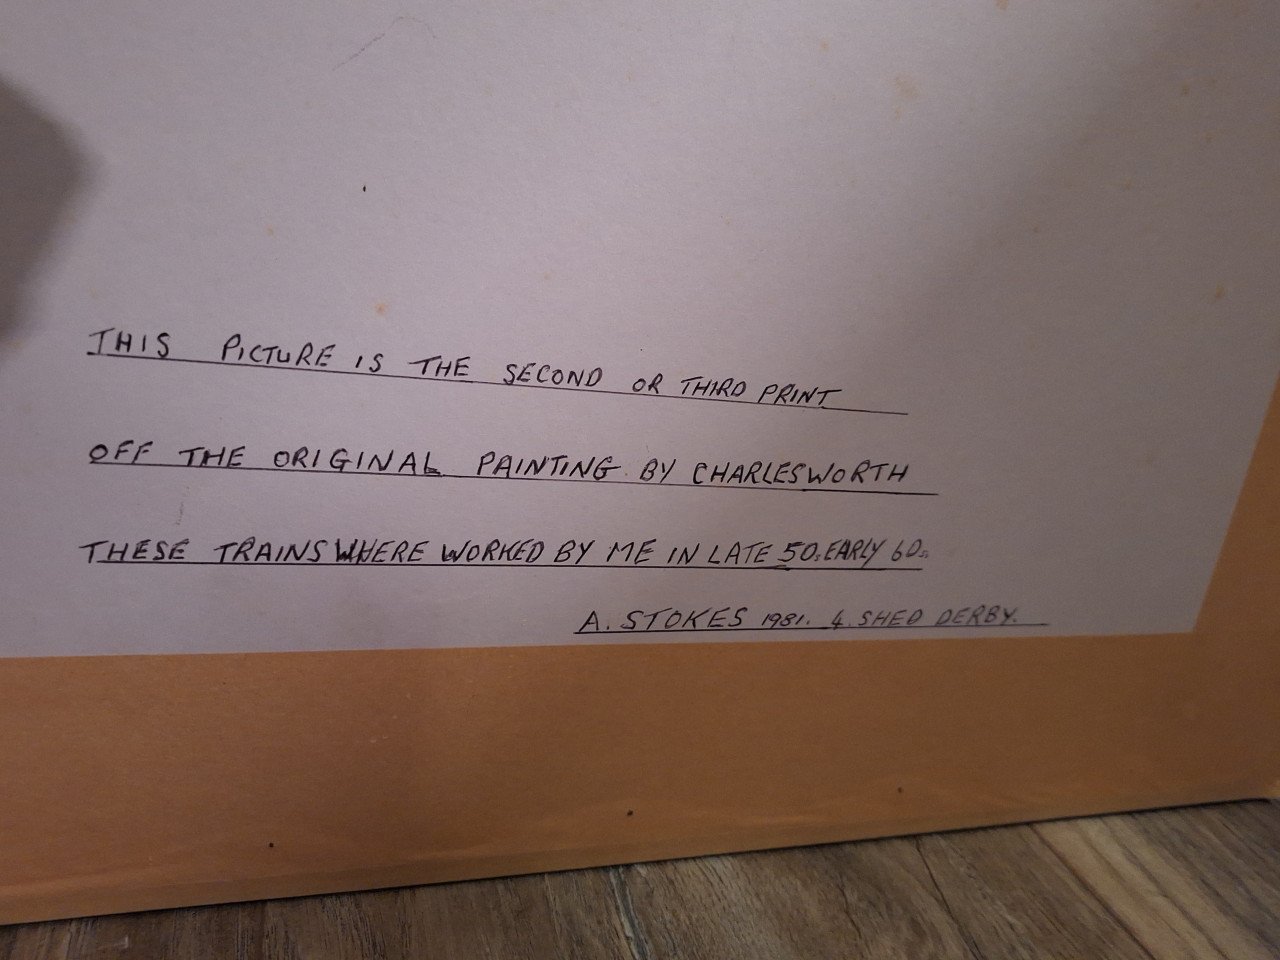 THIS PICTURE IS THE SECOND OR THIRD PRINT
OFF THE ORIGINAL PAINTING BY CHARLESWORTH
THESE TRAINS WHERE WORKED BY ME IN LATE 50s EARLY 60s
A. STOKES 1981. 4. SHED DERBY.